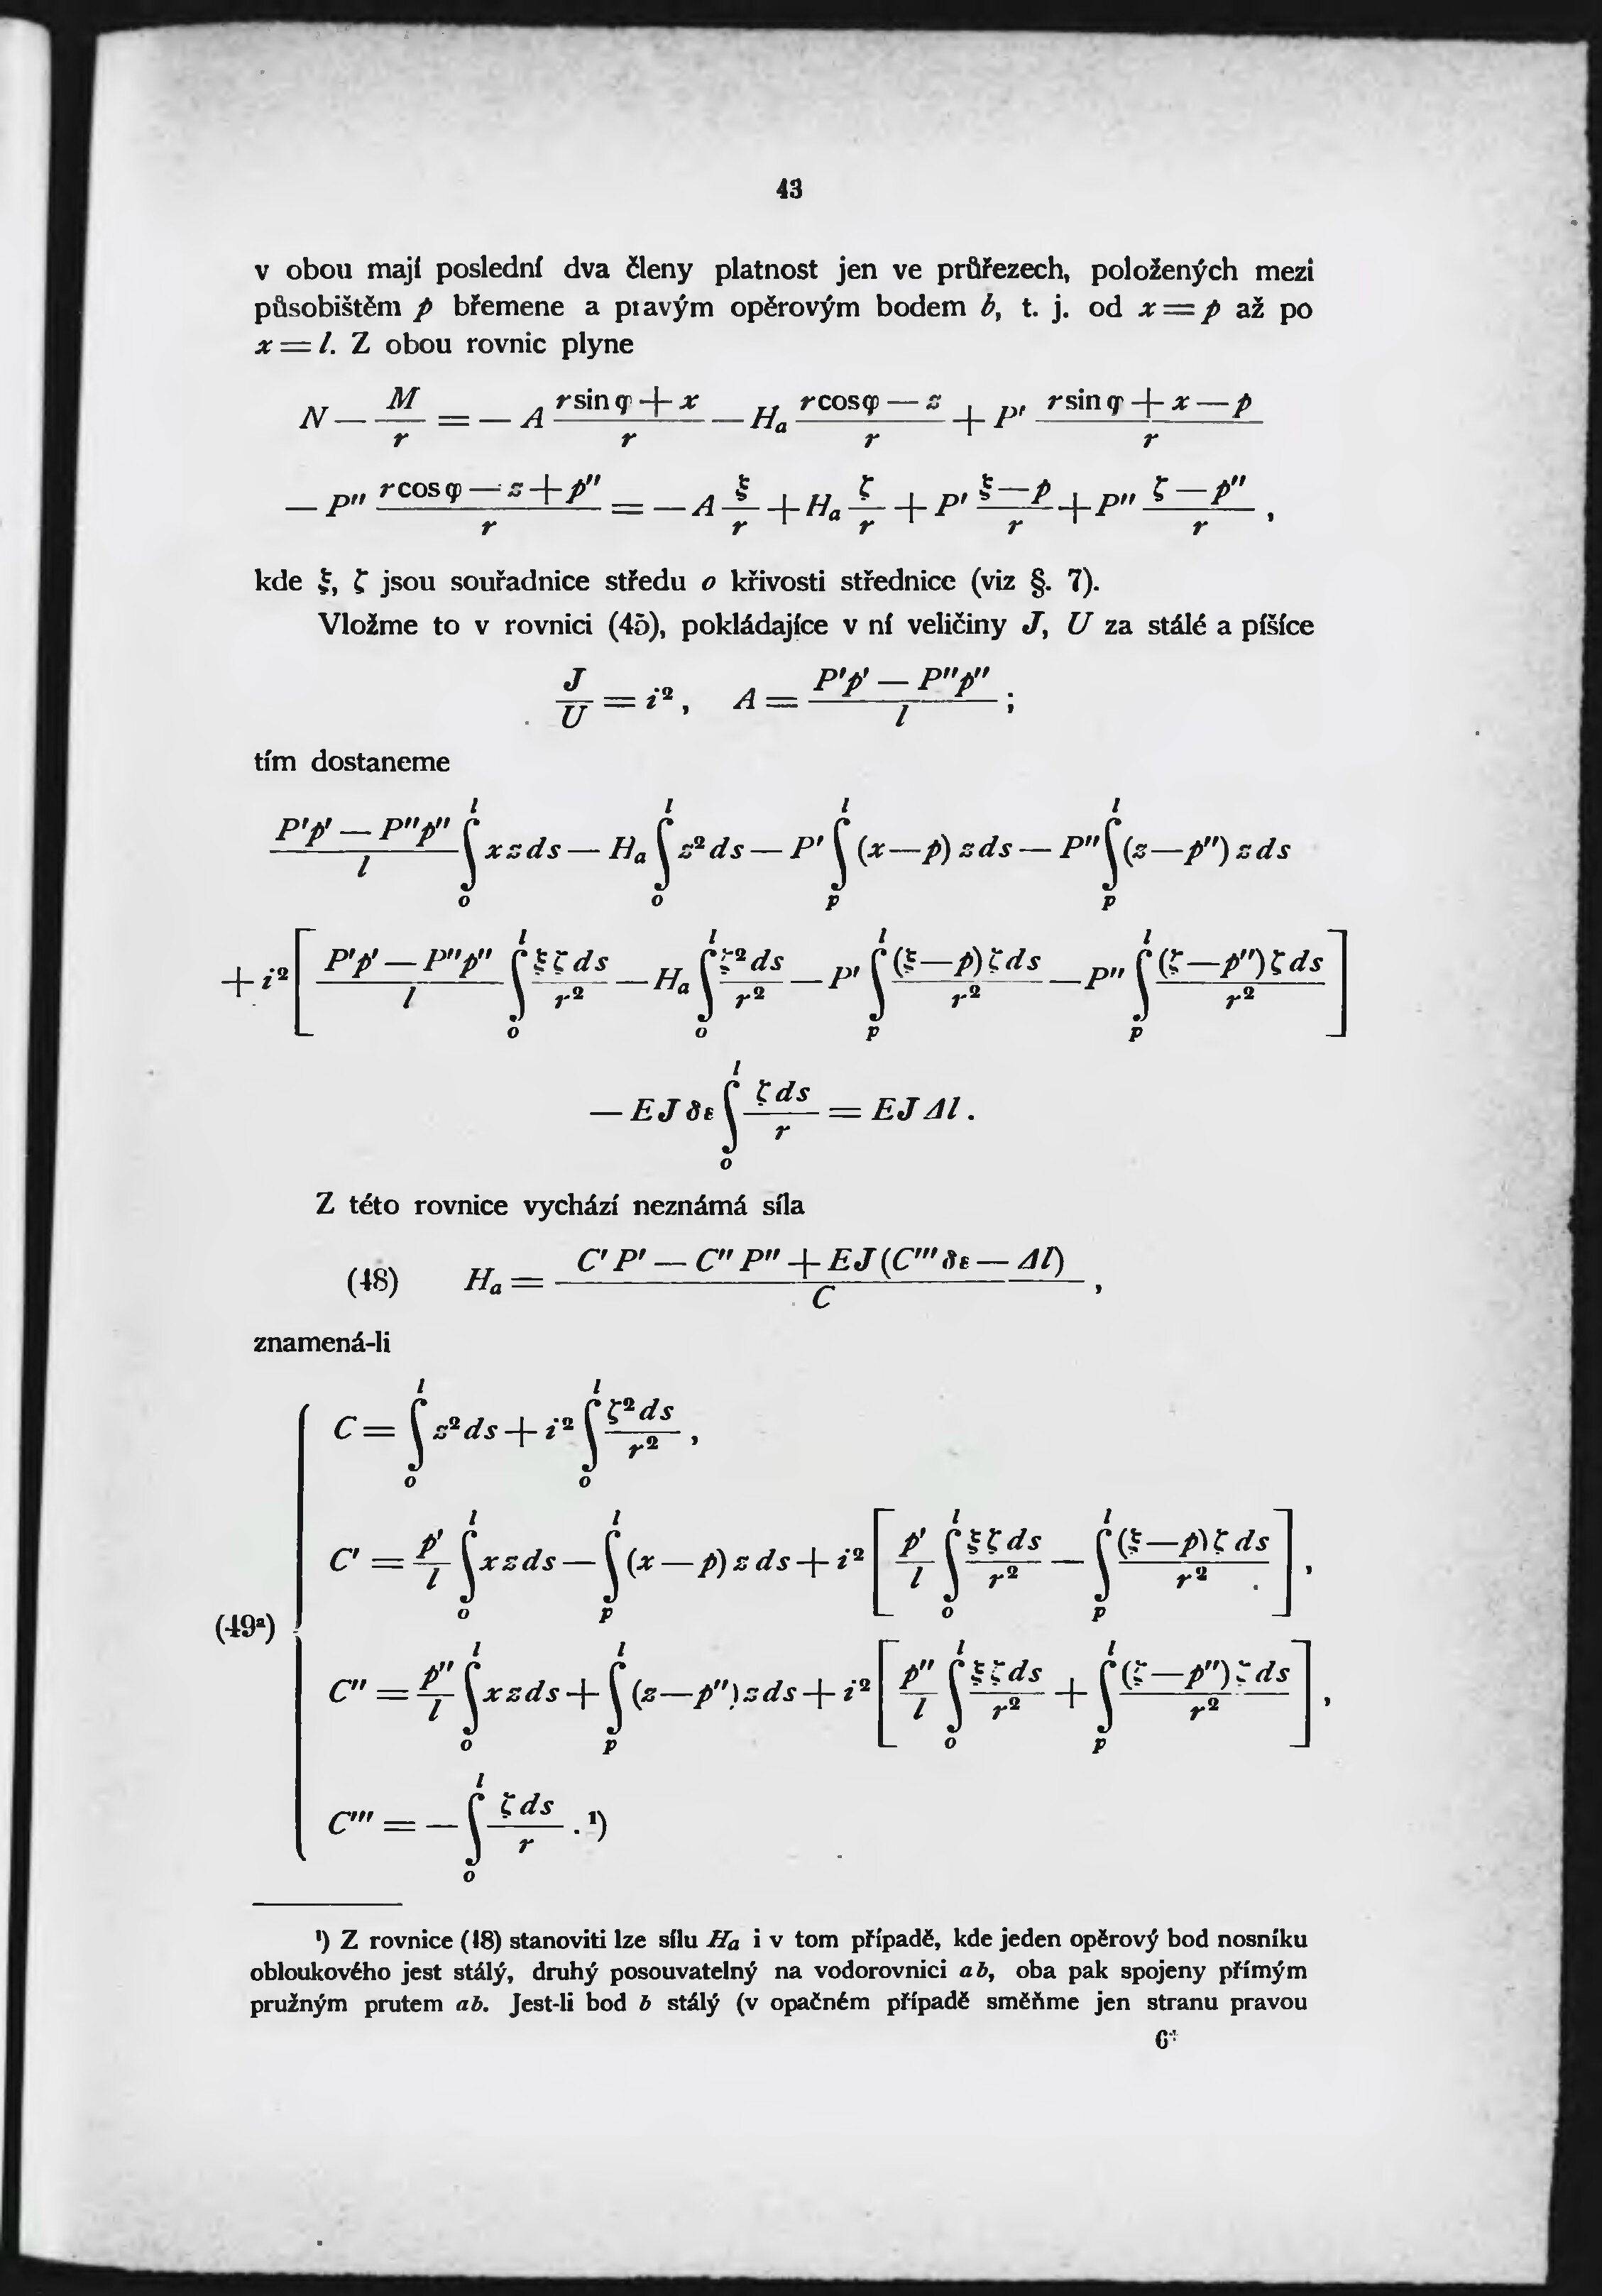 43
v obou mají poslední dva členy platnost jen ve průřezech, položených mezi
působištěm p břemene a pravým opěrovým bodem b, t. j. od x = p až po
x = l. Z obou rovnic plyne
N — M/r = — A (r sin φ + x)/r — H_a (r cos φ — z)/r + P' (r sin φ + x — p)/r
— P'' (r cos φ — z + p'')/r = — A ξ/r + H_a ζ/r + P' (ξ — p)/r + P'' (ζ — p'')/r ,
kde ξ, ζ jsou souřadnice středu o křivosti střednice (viz §. 7).
Vložme to v rovnici (45), pokládajíce v ní veličiny J, U za stálé a píšíce
J/U = i² , A = (P'p' — P''p'')/l ;
tím dostaneme
(P'p' — P''p'')/l ∫_o^l x z ds — H_a ∫_o^l z² ds — P' ∫_p^l (x — p) z ds — P'' ∫_p^l (z — p'') z ds
+ i² [ (P'p' — P''p'')/l ∫_o^l ξζ ds/r² — H_a ∫_o^l ζ² ds/r² — P' ∫_p^l (ξ — p) ζ ds/r² — P'' ∫_p^l (ζ — p'') ζ ds/r² ]
— EJ δε ∫_o^l ζ ds/r = EJ Δl .
Z této rovnice vychází neznámá síla
(48) H_a = (C' P' — C'' P'' + EJ (C''' δε — Δl))/C ,
znamená-li
C = ∫_o^l z² ds + i² ∫_o^l ζ² ds/r² ,
C' = p'/l ∫_o^l x z ds — ∫_p^l (x — p) z ds + i² [ p'/l ∫_o^l ξζ ds/r² — ∫_p^l (ξ — p) ζ ds/r² ] ,
(49ª)
C'' = p''/l ∫_o^l x z ds + ∫_p^l (z — p'') z ds + i² [ p''/l ∫_o^l ξζ ds/r² + ∫_p^l (ζ — p'') ζ ds/r² ] ,
C''' = — ∫_o^l ζ ds/r . ¹)
¹) Z rovnice (48) stanoviti lze sílu H_a i v tom případě, kde jeden opěrový bod nosníku
obloukového jest stálý, druhý posouvatelný na vodorovnici ab, oba pak spojeny přímým
pružným prutem ab. Jest-li bod b stálý (v opačném případě směňme jen stranu pravou
6*